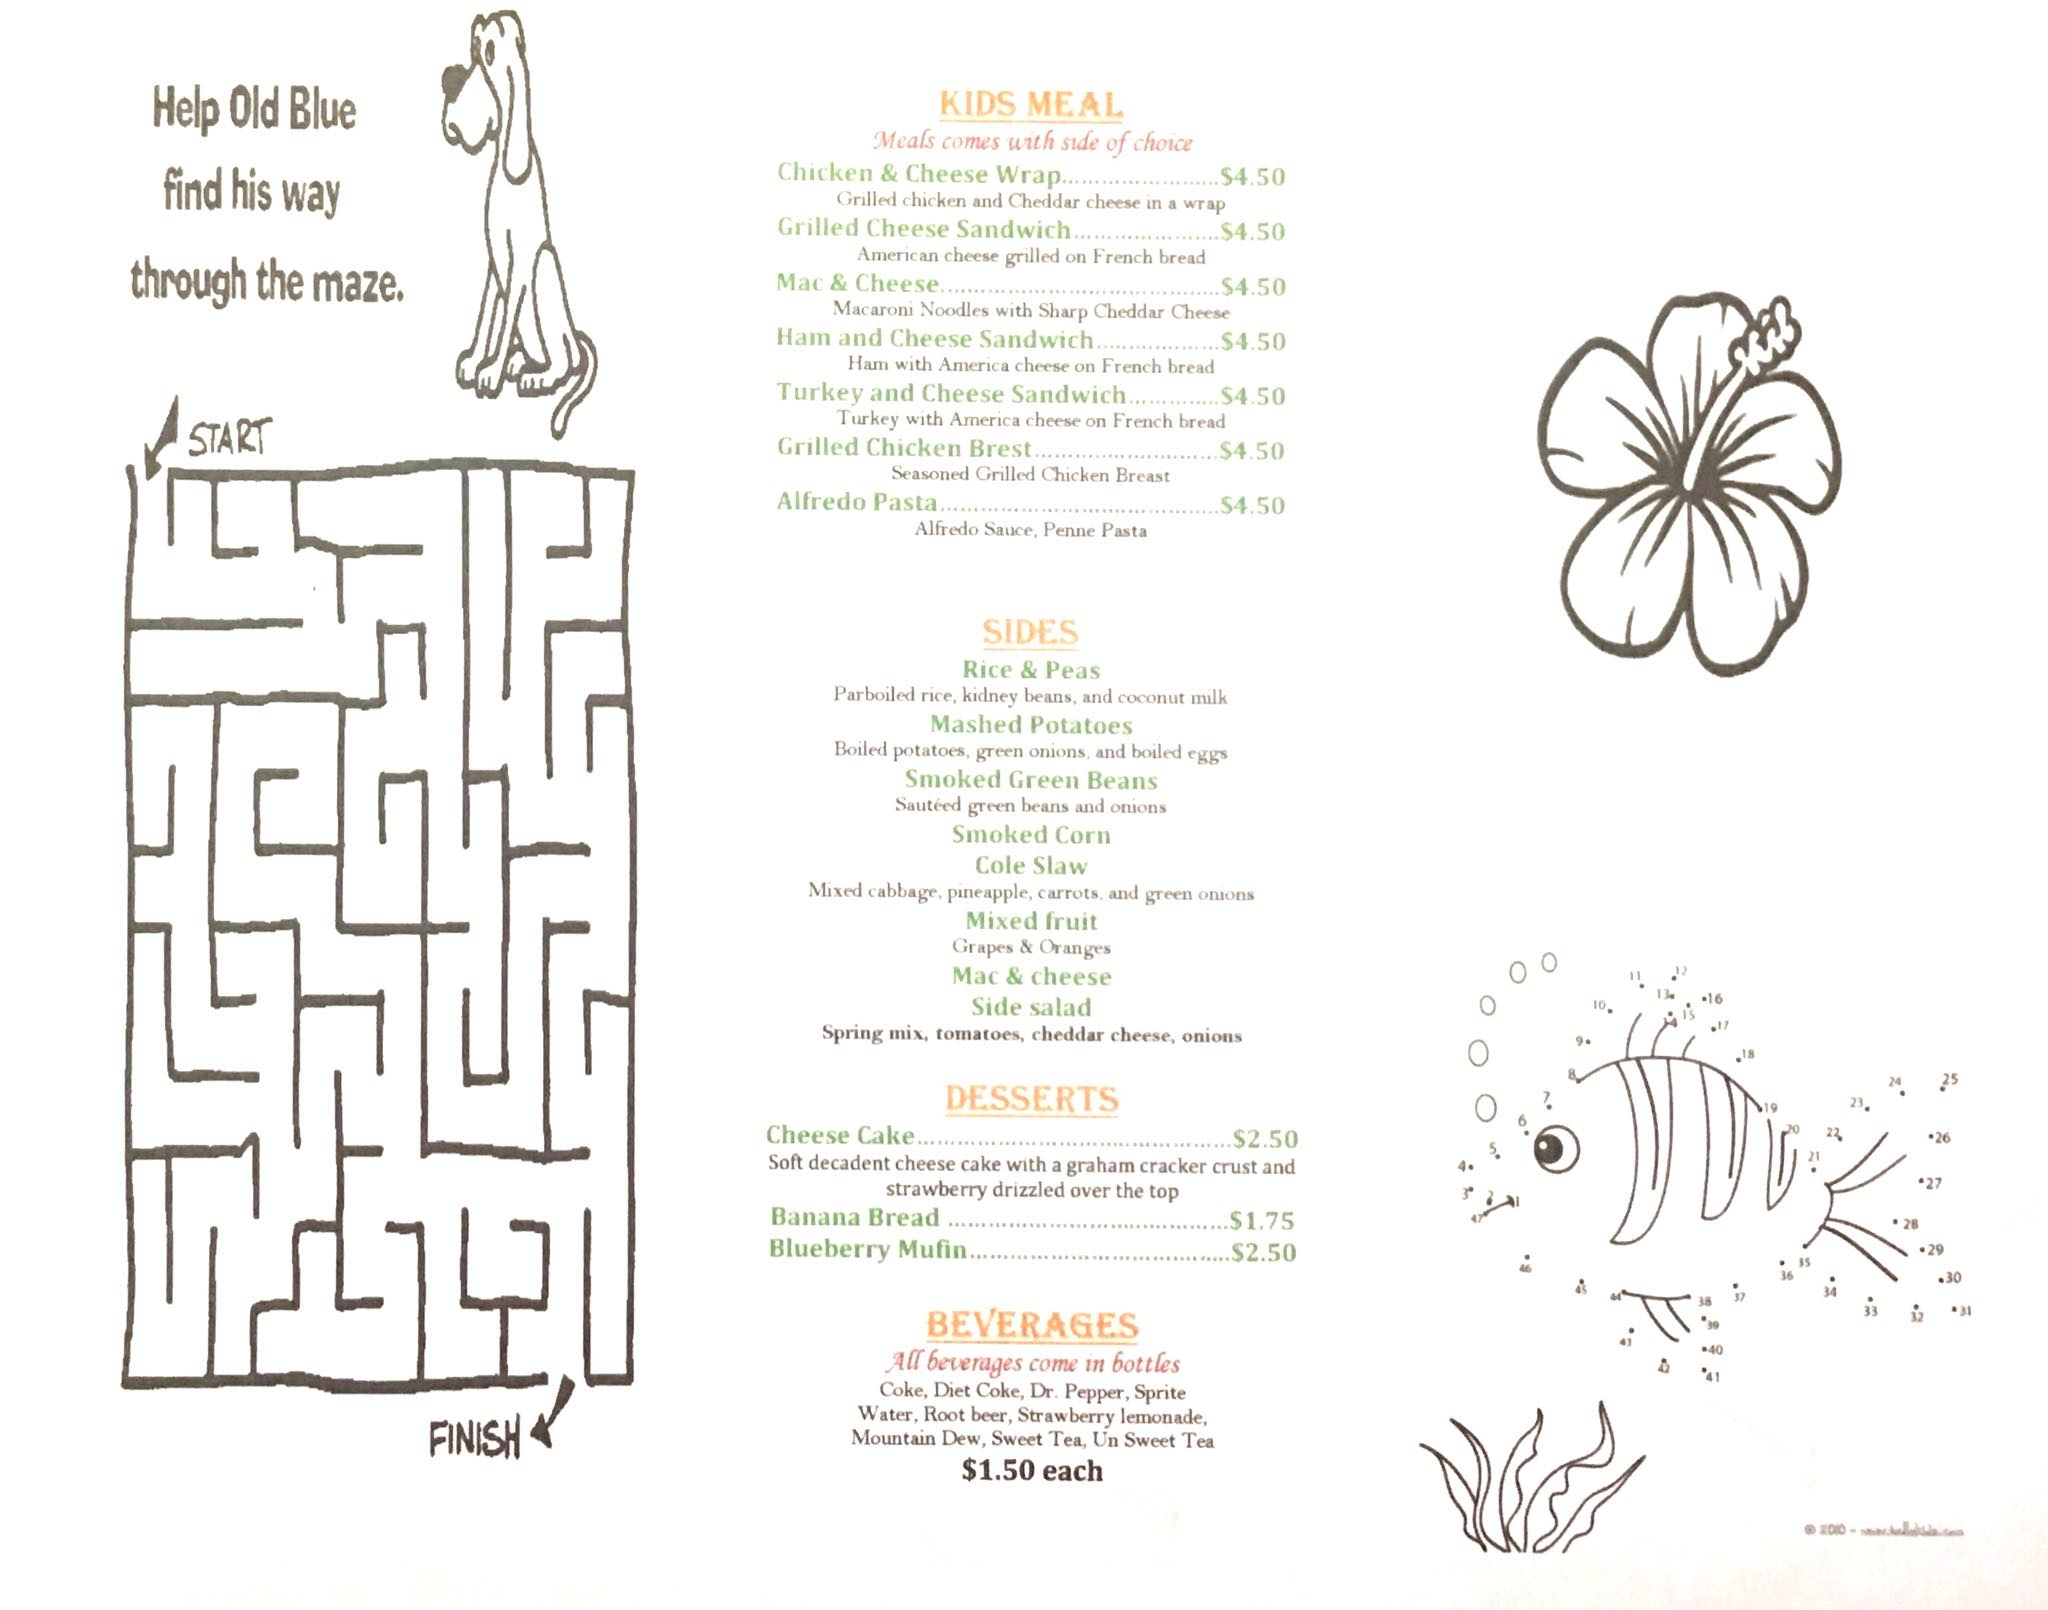 Help Old Blue
find his way
through the maze.
START
FINISH
KIDS MEAL
Meals comes with side of choice
Chicken & Cheese Wrap........................$4.50
Grilled chicken and Cheddar cheese in a wrap
Grilled Cheese Sandwich......................$4.50
American cheese grilled on French bread
Mac & Cheese..........................................$4.50
Macaroni Noodles with Sharp Cheddar Cheese
Ham and Cheese Sandwich...................$4.50
Ham with America cheese on French bread
Turkey and Cheese Sandwich..............$4.50
Turkey with America cheese on French bread
Grilled Chicken Brest............................$4.50
Seasoned Grilled Chicken Breast
Alfredo Pasta..........................................$4.50
Alfredo Sauce, Penne Pasta
SIDES
Rice & Peas
Parboiled rice, kidney beans, and coconut milk
Mashed Potatoes
Boiled potatoes, green onions, and boiled eggs
Smoked Green Beans
Sautéed green beans and onions
Smoked Corn
Cole Slaw
Mixed cabbage, pineapple, carrots, and green onions
Mixed fruit
Grapes & Oranges
Mac & cheese
Side salad
Spring mix, tomatoes, cheddar cheese, onions
DESSERTS
Cheese Cake................................................$2.50
Soft decadent cheese cake with a graham cracker crust and
strawberry drizzled over the top
Banana Bread ...........................................$1.75
Blueberry Mufin........................................$2.50
BEVERAGES
All beverages come in bottles
Coke, Diet Coke, Dr. Pepper, Sprite
Water, Root beer, Strawberry lemonade,
Mountain Dew, Sweet Tea, Un Sweet Tea
$1.50 each
1
2
3
4
5
6
7
8
9
10
11
12
13
14
15
16
17
18
19
20
21
22
23
24
25
26
27
28
29
30
31
32
33
34
35
36
37
38
39
40
41
42
43
44
45
46
47
© 2010 -